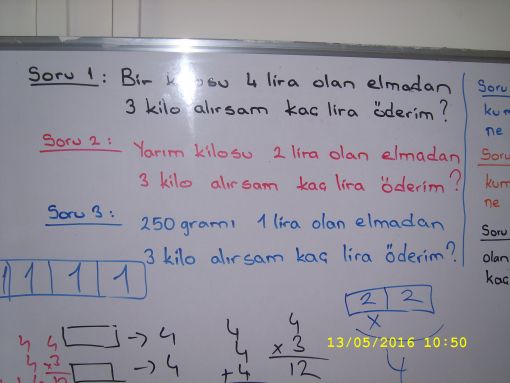 Soru 1: Bir kilosu 4 lira olan elmadan
3 kilo alırsam kaç lira öderim?
Soru 2: Yarım kilosu 2 lira olan elmadan
3 kilo alırsam kaç lira öderim?
Soru 3: 250 gramı 1 lira olan elmadan
3 kilo alırsam kaç lira öderim?
1 1 1 1
4 4
x3
12
→ 4
→ 4
4
4
+4
4
x 3
12
2 2
x
4
Soru
ne
Soru
ne
Soru
olan
kaç
13/05/2016 10:50